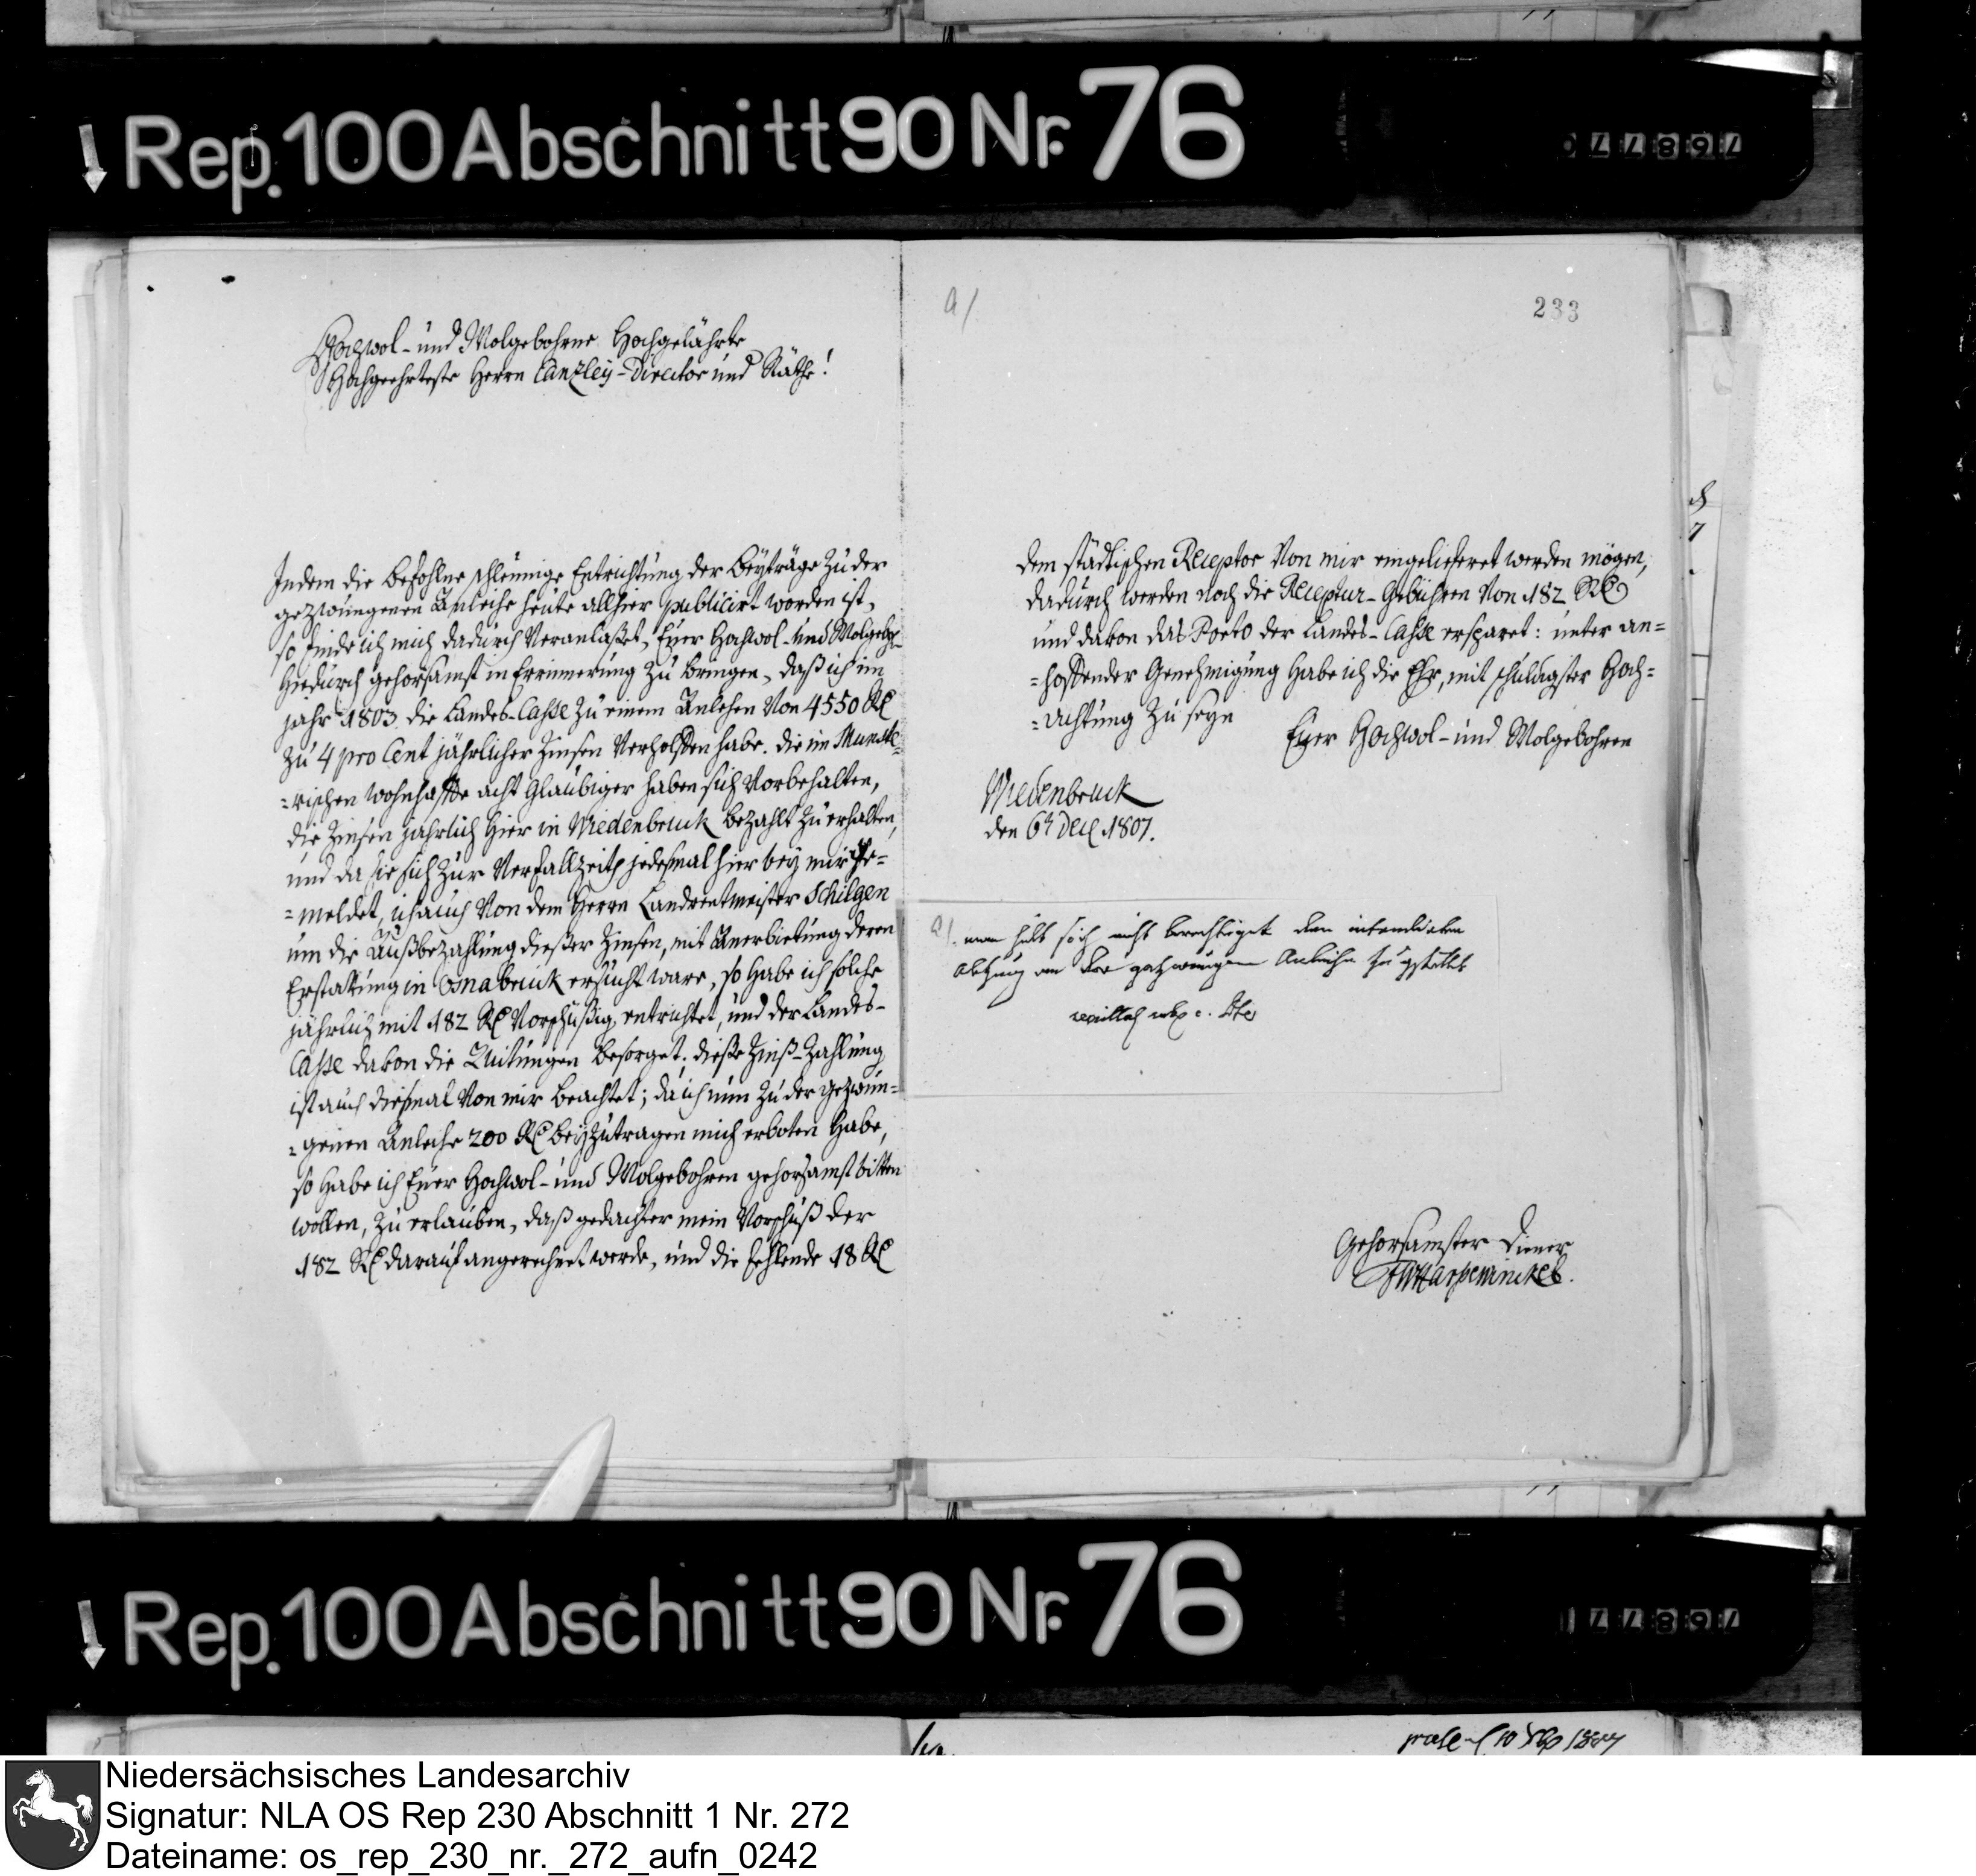 Rep. 100 Abschnitt 90 Nr. 76
Hochwol- und Wolgebohrne Hochgelährte
Hochgeehrteste Herrn Canzley-Director und Räthe!
Indem die befohlne schleunige Entrichtung der Beyträge zu der
gezwungenen Anleihe heute allhier publicirt worden ist,
so finde ich mich dadurch veranlaßet, Euer Hochwol- und Wolgebohr
hiedurch gehorsamst in Errinnerung zu bringen, daß ich im
jahr 1803 die Landes-Casse zu einem Anlehen von 4550 Rl
zu 4 pro Cent jährlicher Zinsen verholffen habe. die im Munste-
=rischen wohnhaffte acht Glaübiger haben sich vorbehalten,
die Zinsen jährlich hier in Wiedenbruck bezahlt zu erhalten,
und da sie sich zur Verfallzeith jedesmal hier bey mir ge=
=meldet, ich auch von dem Herrn Landrentmeister Schilgen
um die Außbezahlung dießer Zinsen, mit Anerbietung deren
Erstattung in Osnabruck ersucht ware, so habe ich solche
jährlich mit 182 Rl vorschüßig entrichtet, und der Landes-
Casse davon die Quitungen besorget. dieße Zinß-Zahlung
ist auch diesmal von mir beachtet; da ich nun zu der gezwun=
=genen Anleihe 200 Rl beyzutragen mich erboten habe,
so habe ich Euer Hochwol- und Wolgebohren gehorsamst bitten
wollen, zu erlauben, daß gedachter mein Vorschuß der
182 Rl darauf angerechnet werde, und die fehlende 18 Rl
a/
233
dem städtischen Receptor von mir eingelieferet werden mögen,
dadurch werden noch die Receptur-Gebühren von 182 Rl
und davon das Porto der Landes-Casse ersparet: unter an=
=hoffender Genehmigung habe ich die Ehr, mit schuldigster Hoch=
=Achtung zu seyn
Euer Hochwol- und Wolgebohren
Wiedenbruck
den 6t Dec 1807.
a/. man hält sich nicht berechtiget den intendirten
Abzug an der gezwungenen Anleihe zu gestatten
Gehorsamster Diener
FWHarsewinckel.
10 1807
Rep. 100 Abschnitt 90 Nr. 76
Niedersächsisches Landesarchiv
Signatur: NLA OS Rep 230 Abschnitt 1 Nr. 272
Dateiname: os_rep_230_nr._272_aufn_0242